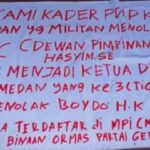 KAMI KADER PDIP K
DAN 99 MILITAN MENOL
C DEWAN PIMPINAN
HASYIM SE
MENJADI KETUA D
MEDAN YANG KE 3 CTI
ENOLAK BOYDO H.K
A TERDAFTAR di MPI CM
BINAAN ORMAS PARTAI GE